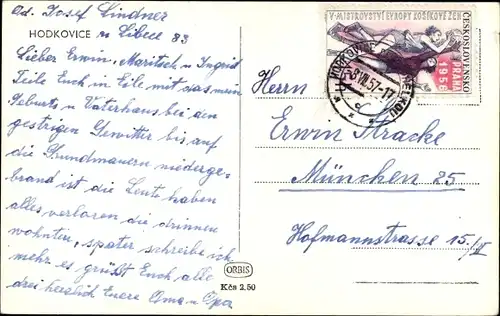 Od. Josef Lindner
HODKOVICE n Libece 83
Lieber Erwin, Maritsch u Ingrid
Teile Euch in Eile mit das mein
Geburts u Vaterhaus bei den
gestrigen Gewitter bis auf
die Grundmauern niederge-
brand ist die Leute haben
alles verloren die drinnen
wohnten, später schreibe ich
mehr es grüßt Euch alle
drei herzlich Euere Oma u Opa
ORBIS
Kčs 2.50
ČESKOSLOVENSKO
PRAHA
1956
HODKOVICE
Herrn
Erwin Stracke
München 25
Hofmannstrasse 15/II